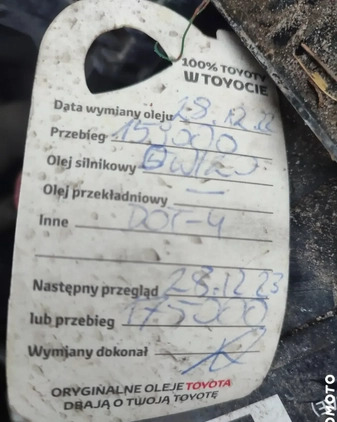 100% TOYOTY
W TOYOCIE
Data wymiany oleju 28.12.22
Przebieg 159000
Olej silnikowy 0W20
Olej przekładniowy —
Inne DOT-4
Następny przegląd 28.12.23
lub przebieg 175000
Wymiany dokonał
ORYGINALNE OLEJE TOYOTA
DBAJĄ O TWOJĄ TOYOTĘ
OTOMOTO